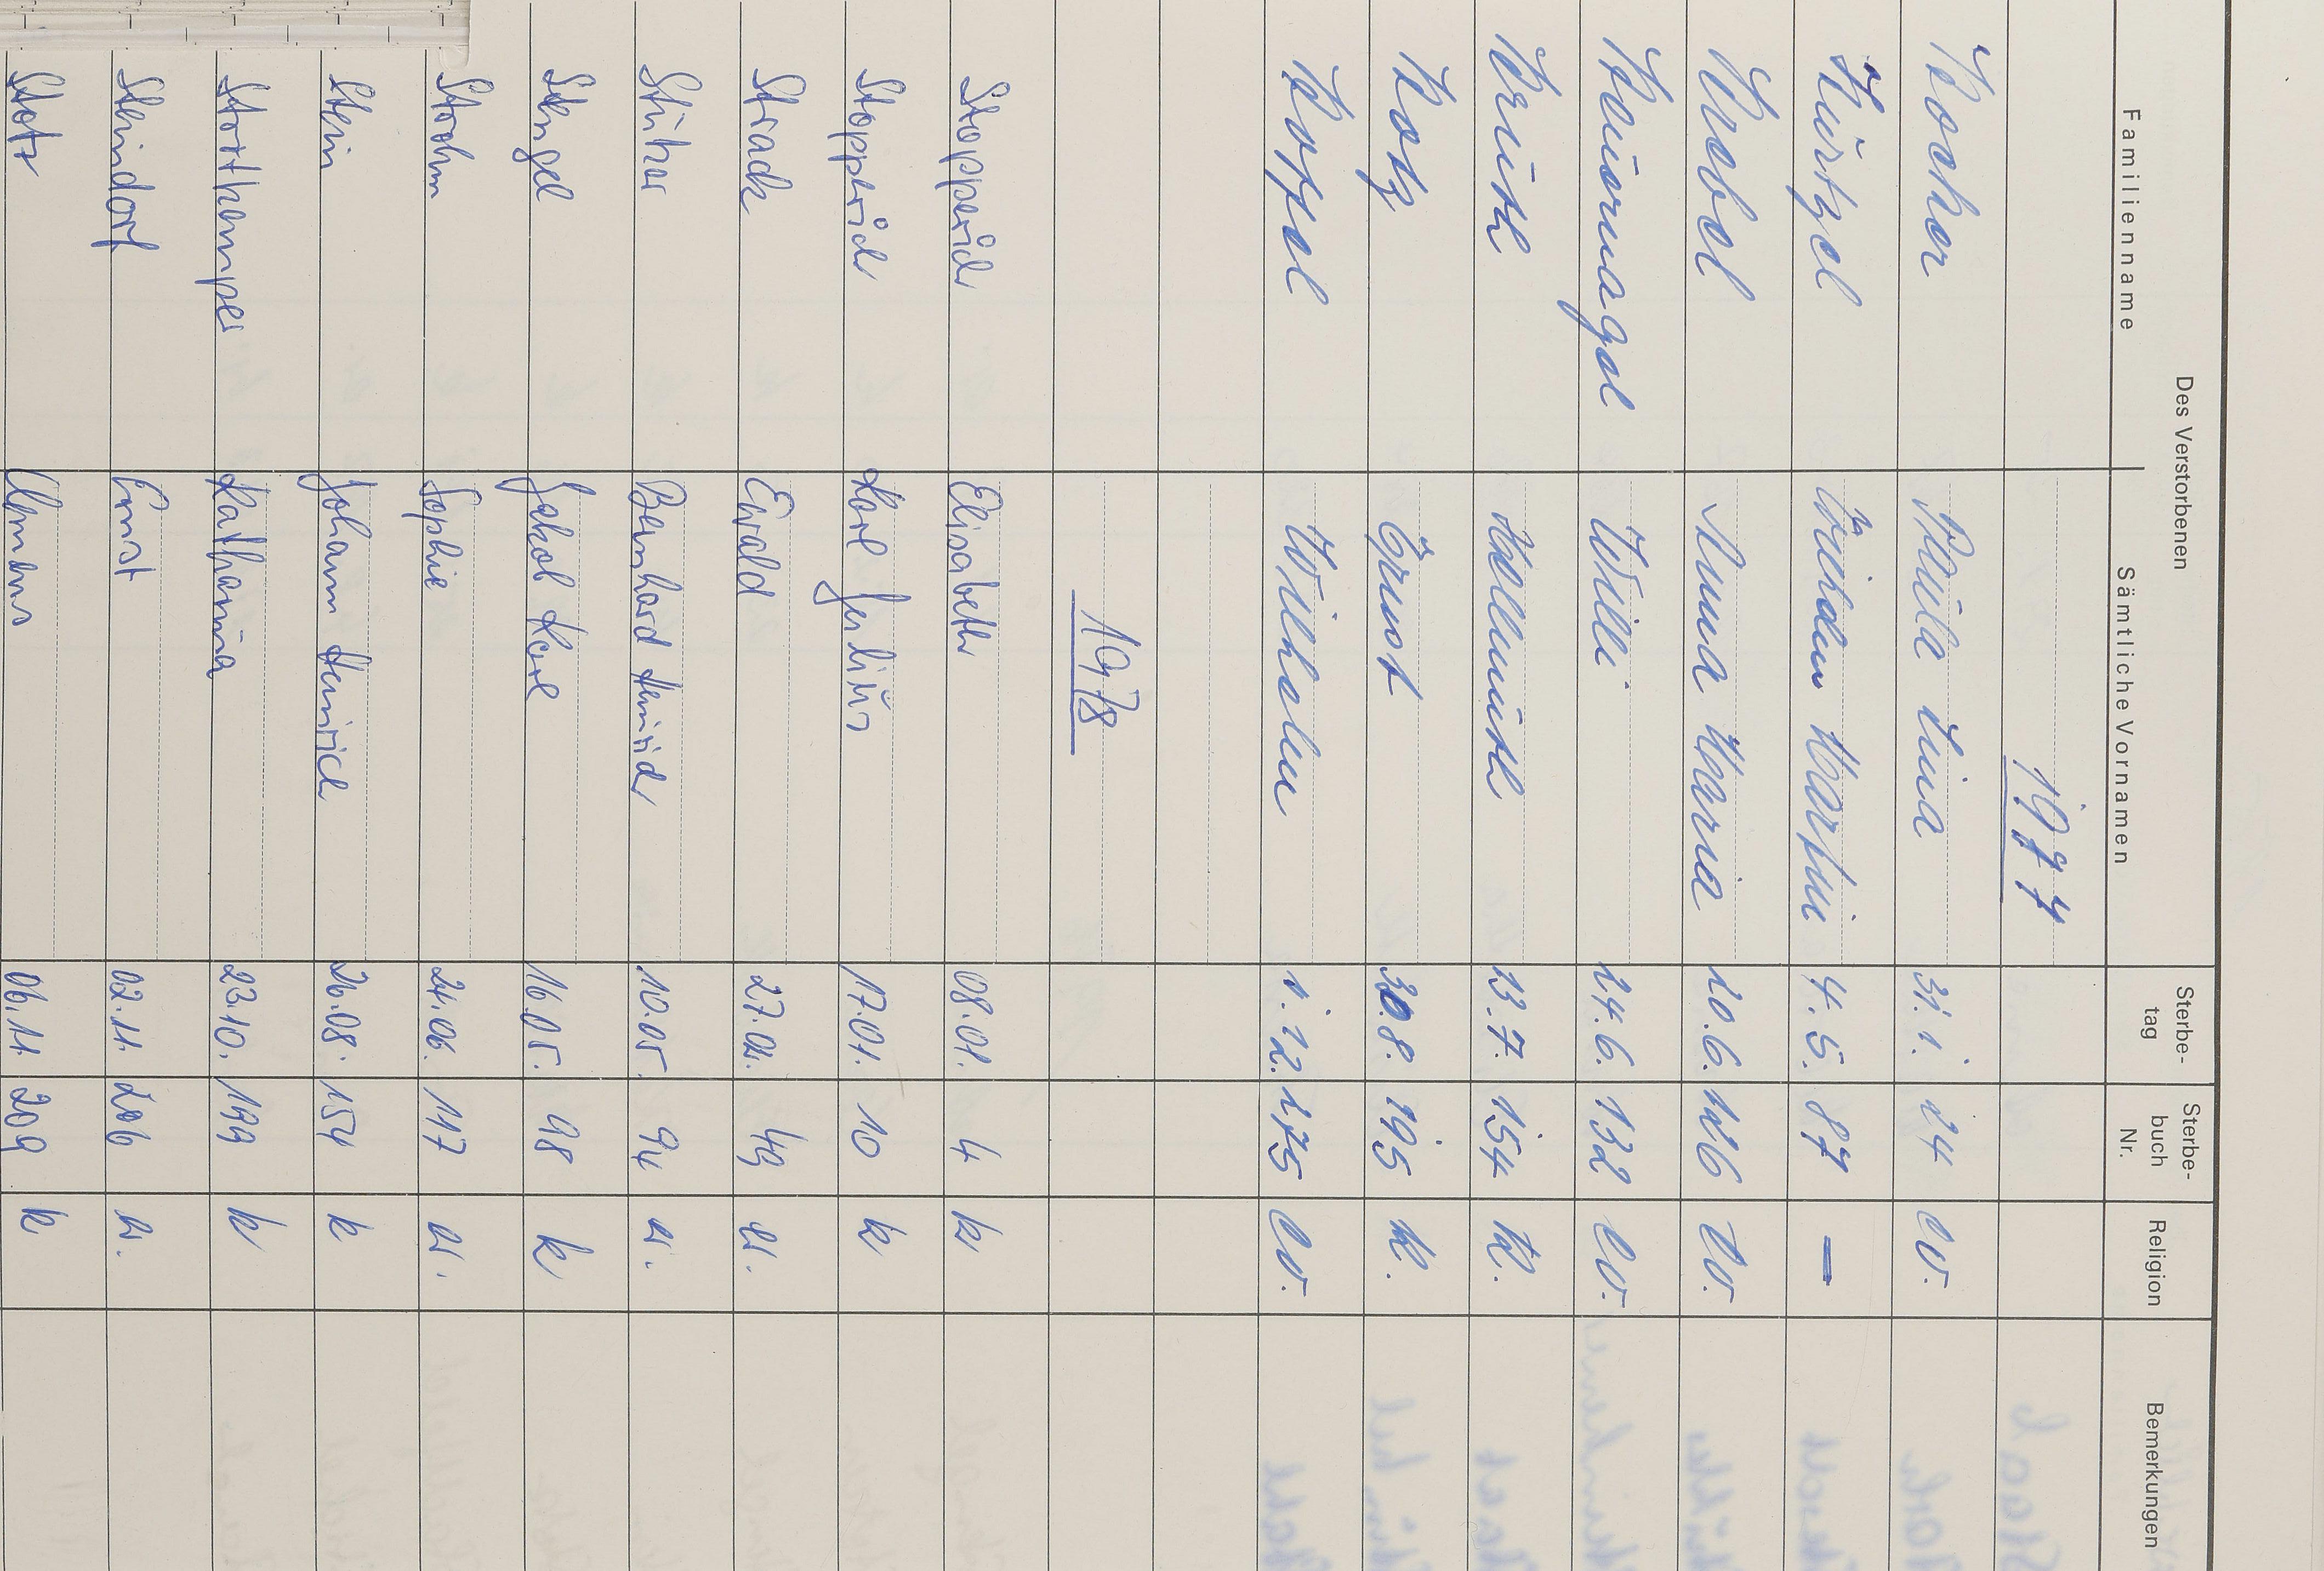 Des Verstorbenen
Familienname Sämtliche Vornamen Sterbe-tag Sterbe-buch Nr. Religion Bemerkungen
1977
Kocher Paula Lina 31.1. 24 ev.
Kürtzel Martin 4.5. 87 –
Knobel Anna Maria 20.6. 126 ev.
Kauernagel Willi 24.6. 132 ev.
Krüth Hellmuth 13.7. 154 k.
Kotz Ernst 30.8. 195 k.
Koppel Wilhelm 1.12. 275 ev.
1978
Stopperich Elisabeth 08.01. 4 k
Stopperich Karl Justin 17.01. 10 k
Strack Ewald 27.02. 49 ev.
Stüker Bernhard Heinrich 10.05. 94 ev.
Stengel Jakob Karl 16.05. 98 k
Strohm Sophie 21.06. 117 ev.
Stein Johann Heinrich 26.08. 154 k
Storthemper Katharina 23.10. 199 k
Steindorf Ernst 02.11. 206 ev.
Stotz 06.11. 209 k